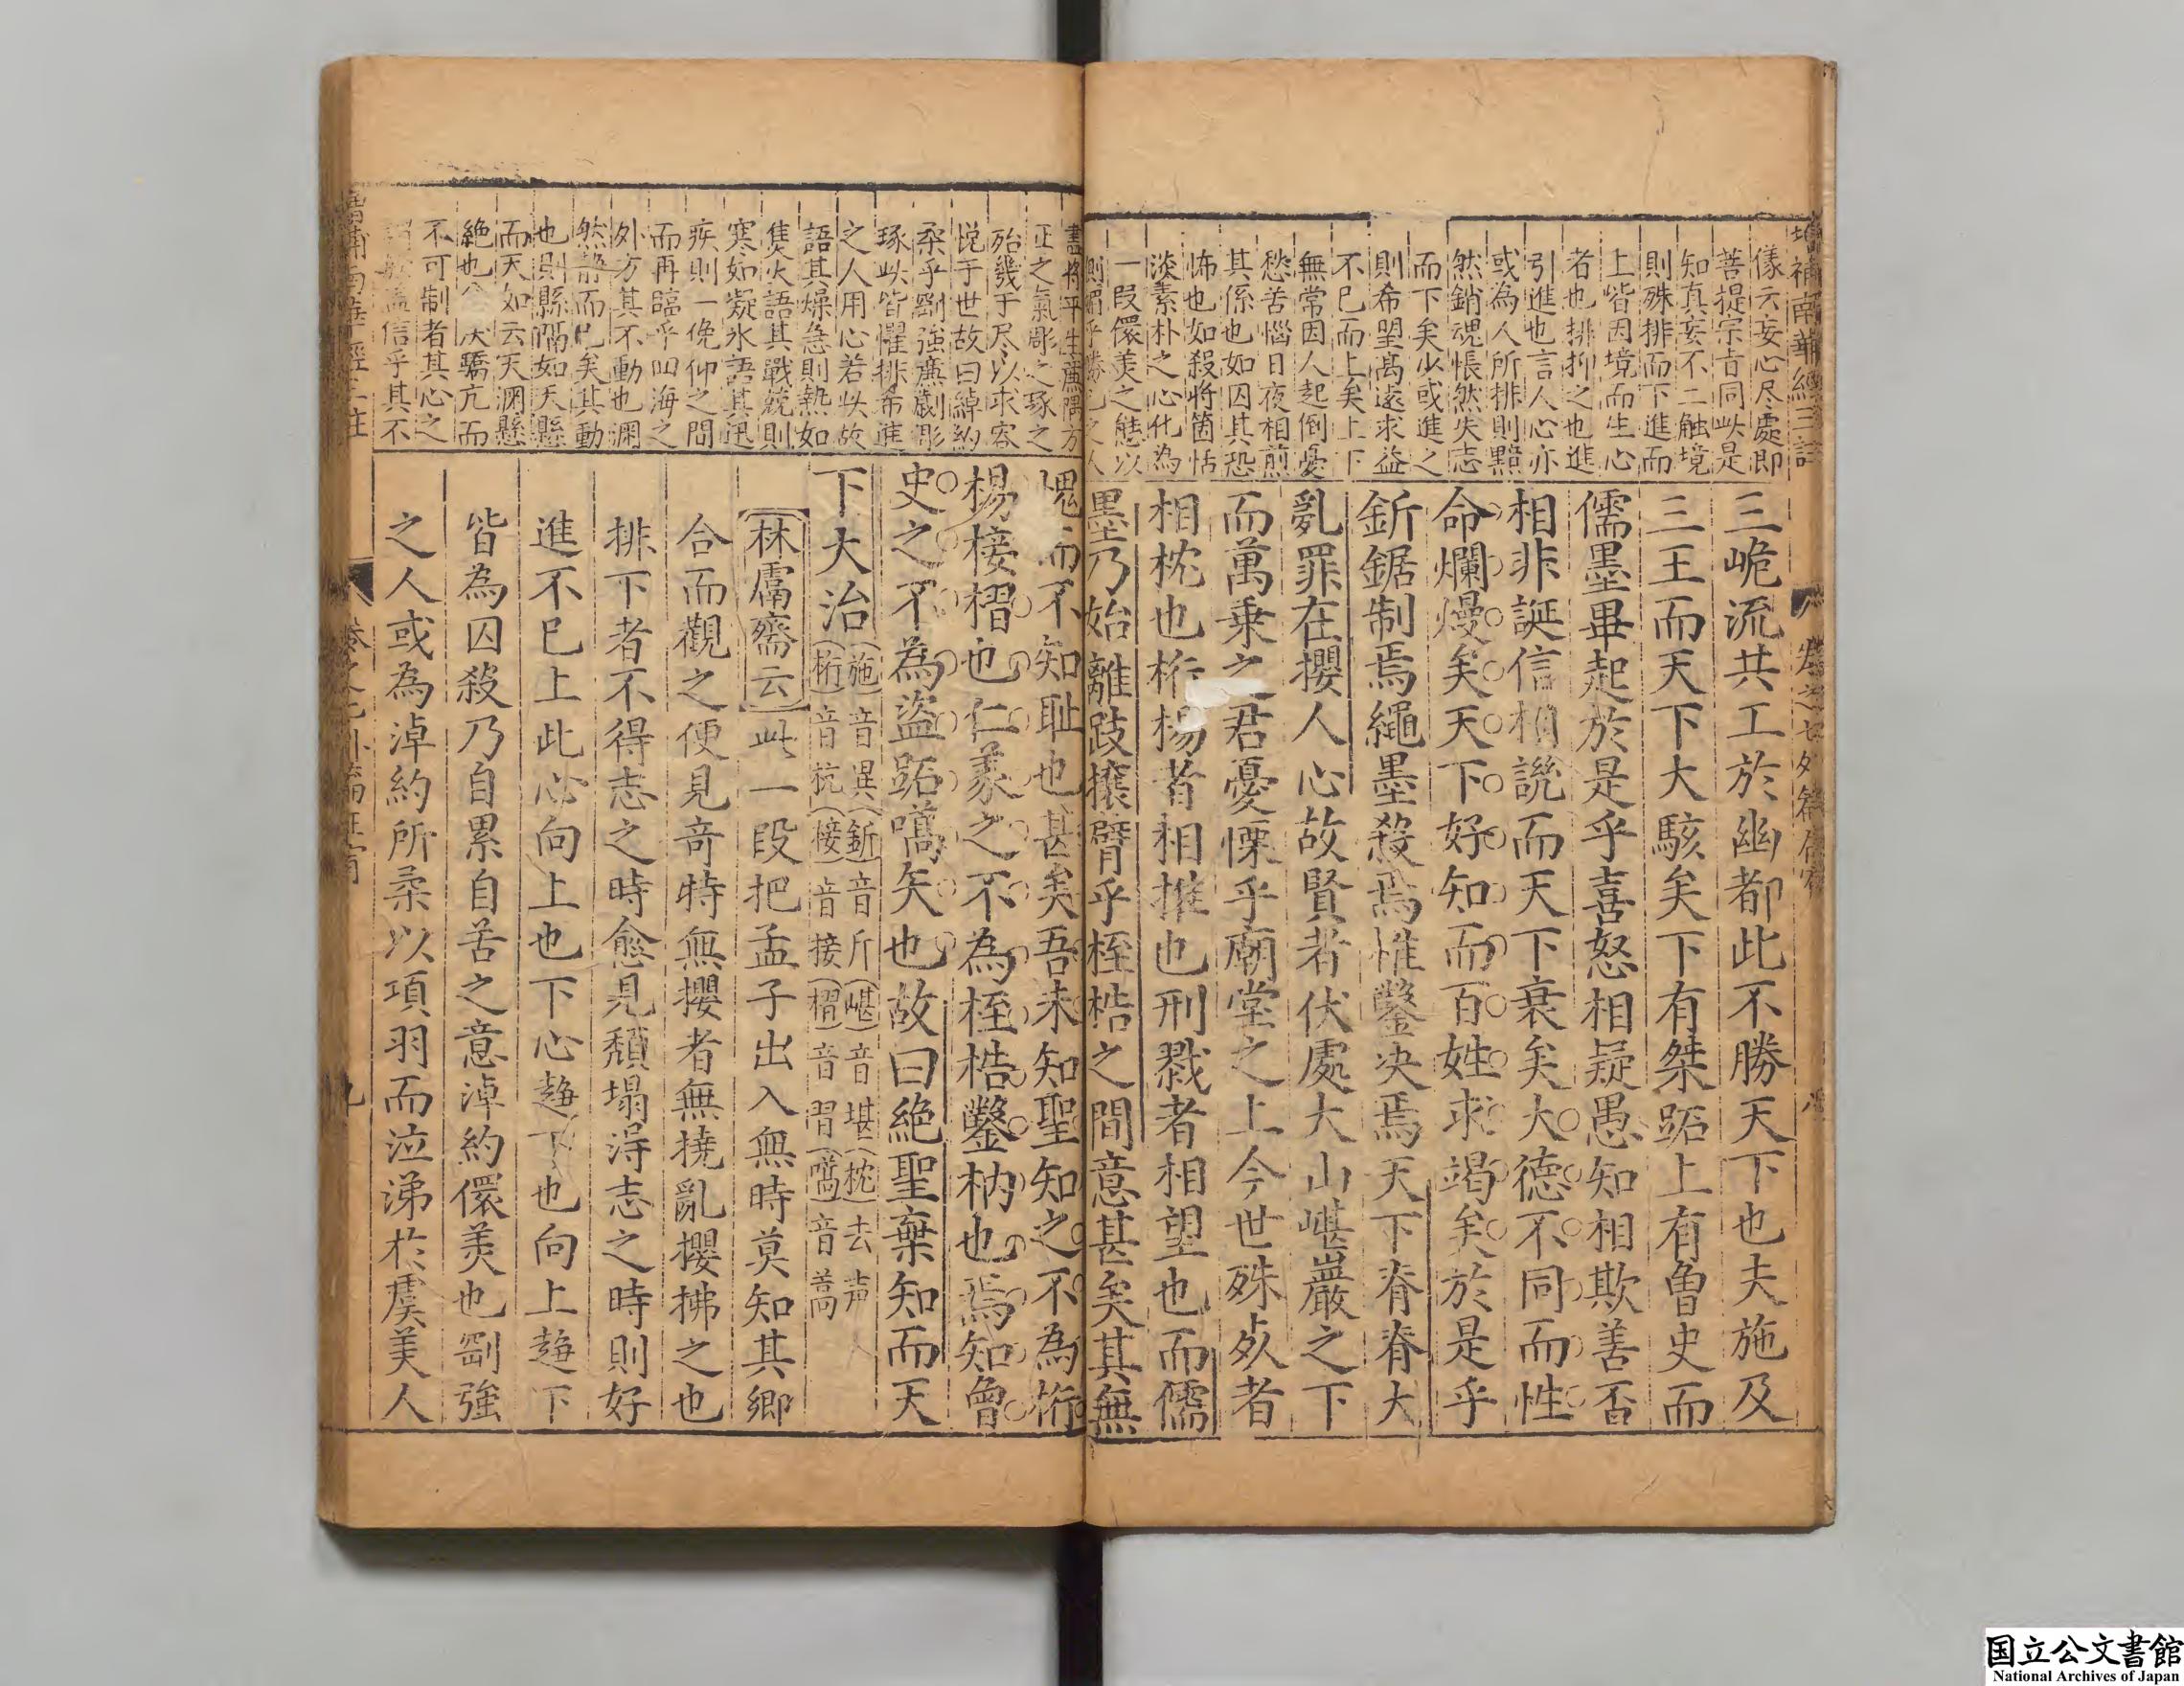 増補南華經三註
儀云妄心尽處即
菩提宗㫖同此是
知真妄不二触境
則殊排而下進而
上皆因境而生心
者也排抑之也進
引進也言人心亦
或為人所排則黯
然銷魂悵然失志
而下矣少或進之
則希望高遠求益
不已而上矣上下
無常因人起倒憂
愁苦惱日夜相煎
其係也如囚其恐
怖也如殺將箇恬
淡素朴之心化為
一段儇美之態以
三峗流共工於幽都此不勝天下也夫施及
三王而天下大駭矣下有桀跖上有魯史而
儒墨畢起於是乎喜怒相疑愚知相欺善否
相非誕信相譏而天下衰矣大德不同而性
命爛熳矣天下好知而百姓求竭矣於是乎
釿鋸制焉繩墨殺焉惟鑿决焉天下脊脊大
亂罪在攖人心故賢者伏處大山嵁巖之下
而萬乗之君憂慄乎廟堂之上今世殊𣦸者
相枕也桁楊者相推也刑戮者相望也而儒
墨乃始離跂攘臂乎桎梏之間意甚矣其無
卷之七外篇在宥
八
盡將平生廉隅方
正之氣彫之琢之
殆幾于尽以求容
悅于世故曰綽約
柔乎剛強廉劌彫
琢此皆懼排希進
之人用心若此故
語其燥急則熱如
焦火語其戰兢則
寒如凝氷語其迅
疾則一俛仰之間
而再臨乎四海之
外方其不動也渊
然静而已矣其動
也則縣隔如天縣
而天如云天渊懸
絶也僨驕亢而
不可制者其心之
信乎其不
愧而不知耻也甚矣吾未知聖知之不為桁
楊椄槢也仁義之不為桎梏鑿枘也焉知曾
史之不為盜跖嚆矢也故曰絶聖棄知而天
下大治（施）音異（釿）音斤（嵁）音堪（枕）去声
（桁）音杭（椄）音接（槢）音習（嚆）音蒿
【林鬳齋云】此一段把孟子出入無時莫知其鄉
合而觀之便見奇特無攖者無撓亂攖拂之也
排下者不得志之時愈見頹塌淂志之時則好
進不已上此心向上也下心趋下也向上趋下
皆為囚殺乃自累自苦之意淖約儇美也剛強
之人或為淖約所柔以項羽而泣涕於虞美人
増補南華經三註
卷之七外篇在宥
九
国立公文書館
National Archives of Japan